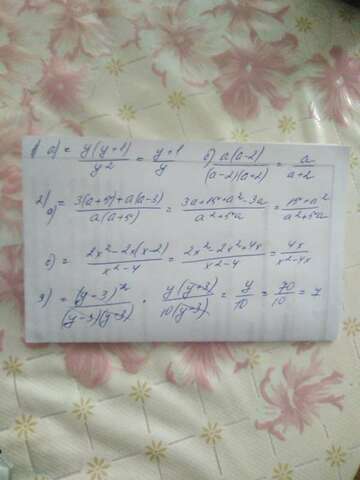 1) а) = y(y+1)/y2 = y+1/y б) a(a-2)/(a-2)(a+2) = a/a+2
2) а) = 3(a+5)+a(a-3)/a(a+5) = 3a+15+a²-3a/a²+5a = 15+a²/a²+5a
б) = 2x²-2x(x-2)/x²-4 = 2x²-2x²+4x/x²-4 = 4x/x²-4x
3) = (y-3)²/(y-3)(y-3) · y(y+3)/10(y-3) = y/10 = 70/10 = 7